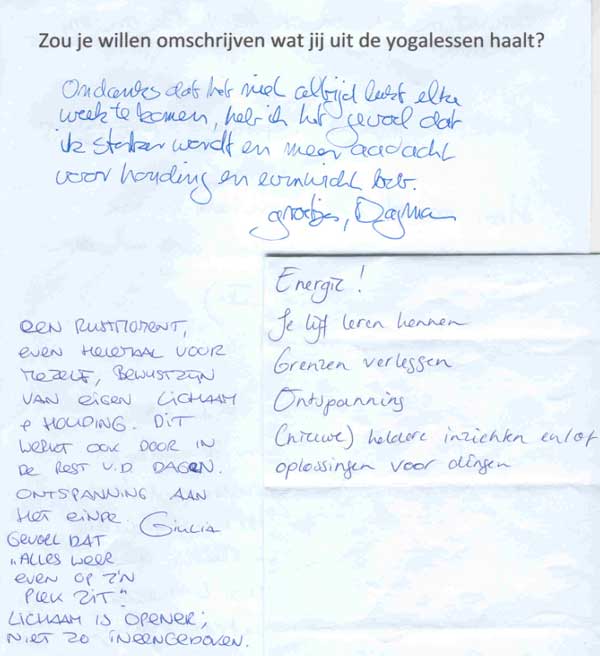 Zou je willen omschrijven wat jij uit de yogalessen haalt?
Ondanks dat het niet altijd lukt elke
week te komen, heb ik het gevoel dat
ik sterker wordt en meer aadacht
voor houding en evenwicht heb.
groetjes, Dagmar
Energie!
Je lijf leren kennen
Grenzen verleggen
Ontspanning
(nieuwe) heldere inzichten en/of
oplossingen voor dingen
EEN RUSTMOMENT,
EVEN HELEMAAL VOOR
MEZELF, BEWUSTZIJN
VAN EIGEN LICHAAM
& HOUDING. DIT
WERKT OOK DOOR IN
DE REST V.D DAGEN.
ONTSPANNING AAN
HET EINDE. GIULIA
GEVOEL DAT
"ALLES WEER
EVEN OP Z'N
PLEK ZIT".
LICHAAM IS OPENER;
NIET ZO INEENGEDOKEN.